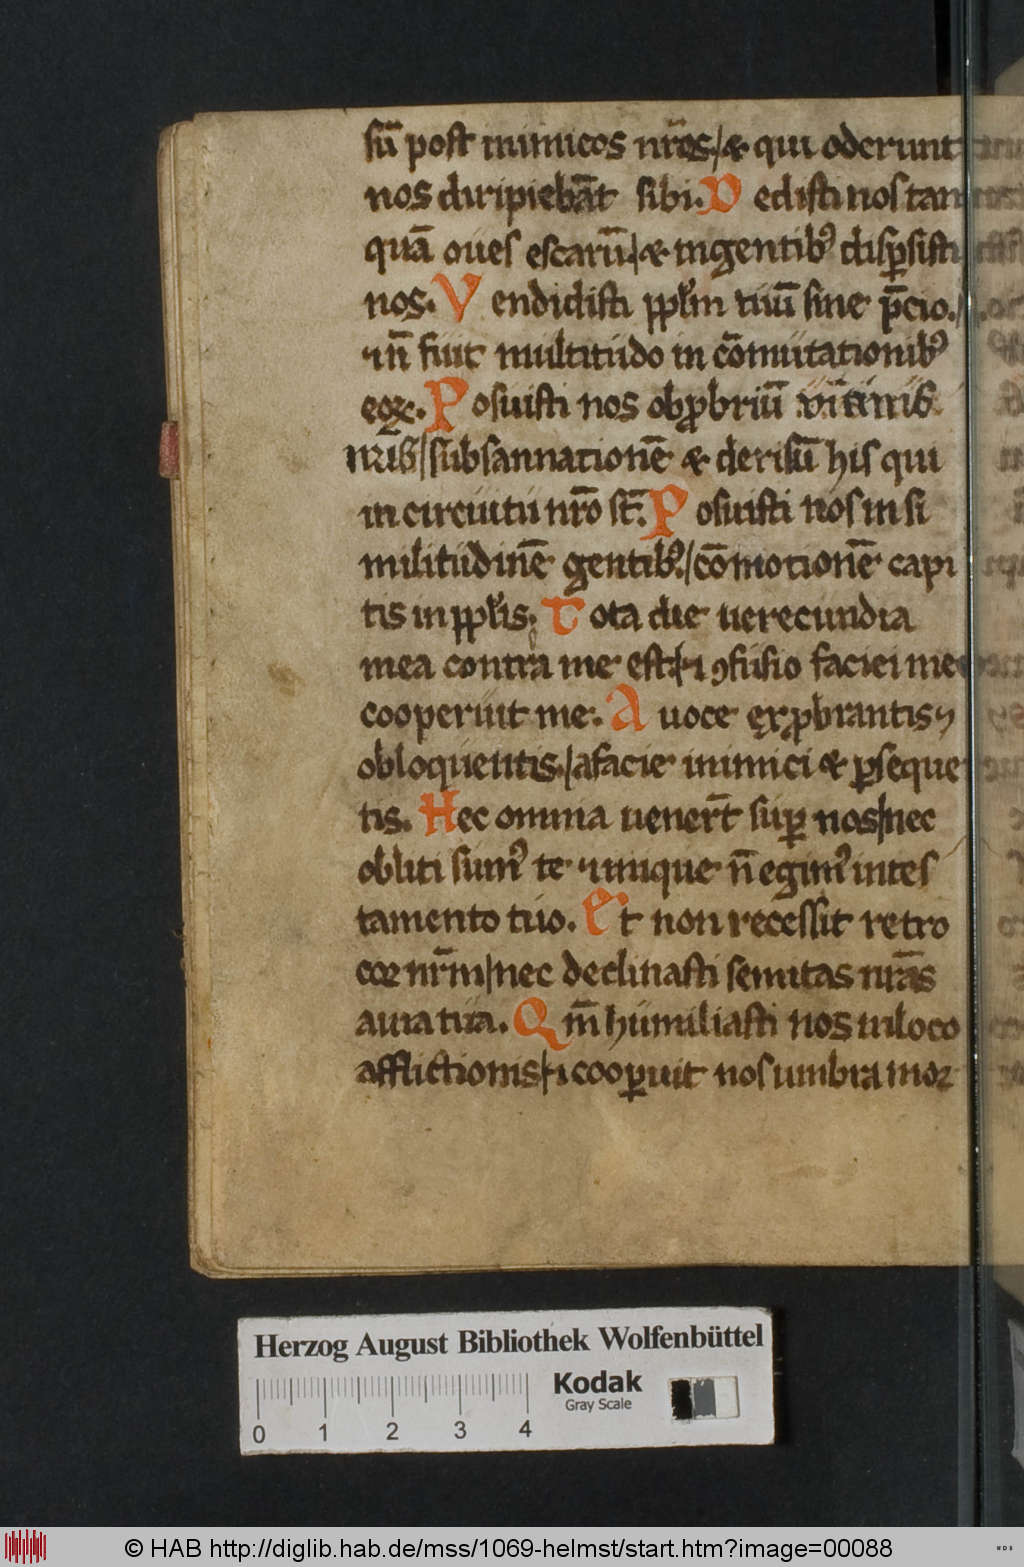 sū post inimicos nr̄os ⁊ qui oderunt
nos diripiebāt sibi. Dedisti nos tan
quā oues escarū ⁊ in gentibꝰ disꝑsisti
nos. Vendidisti ppl̄m tuū sine p̄cio.
⁊ n̄ fuit multitudo in cōmutationibꝰ
eoꝝ. Posuisti nos obꝓbriū uicinis
nr̄is subsannationē ⁊ derisū his qui
in circuitu nr̄o st̄. Posuisti nos in si
militudinē gentibꝰ cōmotionē capi
tis in ppl̄is. Tota die uerecundia
mea contra me est ⁊ ꝯfusio faciei mee
cooperuit me. A uoce exꝓbrantis ⁊
obloquentis a facie inimici ⁊ ꝑseque
tis. Hec omnia uenert̄ suꝑ nos nec
obliti sumꝰ te ⁊ inique n̄ egimꝰ in tes
tamento tuo. Et non recessit retro
cor nr̄m nec declinasti semitas nr̄as
a uia tua. Qm̄ humiliasti nos in loco
afflictionis ⁊ cooꝑuit nos umbra mor
Herzog August Bibliothek Wolfenbüttel
Kodak
Gray Scale
0 1 2 3 4
© HAB http://diglib.hab.de/mss/1069-helmst/start.htm?image=00088